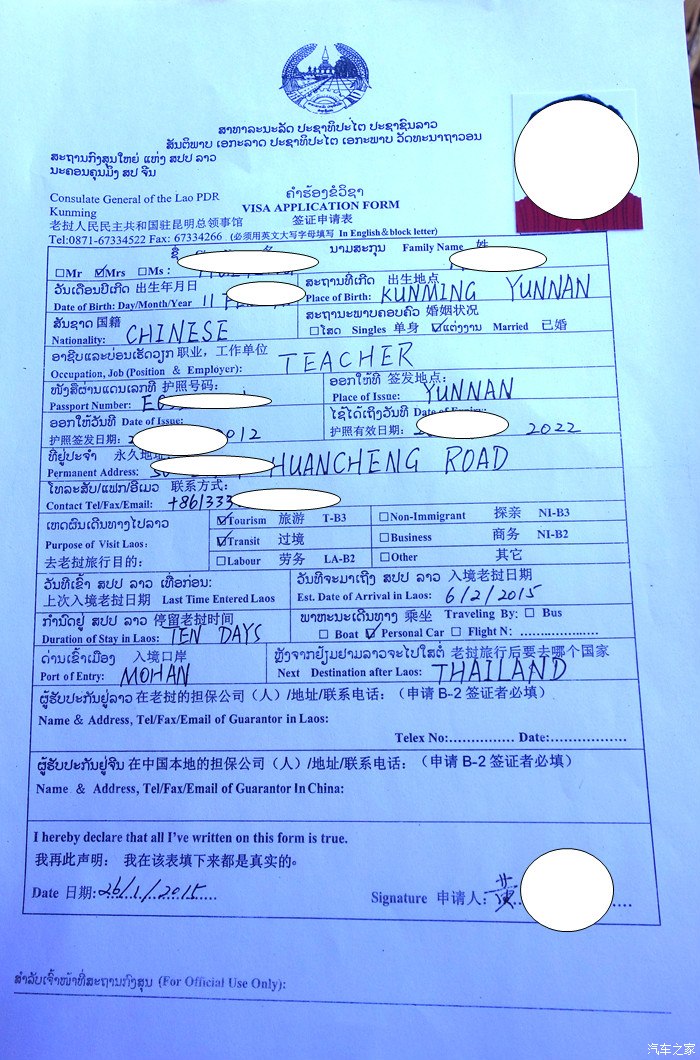 ສາທາລະນະລັດ ປະຊາທິປະໄຕ ປະຊາຊົນລາວ
ສັນຕິພາບ ເອກະລາດ ປະຊາທິປະໄຕ ເອກະພາບ ວັດທະນາຖາວອນ
ສະຖານກົງສຸນໃຫຍ່ ແຫ່ງ ສປປ ລາວ
ນະຄອນຄຸນມິງ ສປ ຈີນ
Consulate General of the Lao PDR
Kunming
老挝人民民主共和国驻昆明总领事馆
Tel:0871-67334522 Fax: 67334266
ຄຳຮ້ອງຂໍວິຊາ
VISA APPLICATION FORM
签证申请表
(必须用英文大写字母填写 In English＆block letter)
ຊື່ 名 ນາມສະກຸນ Family Name 姓
□Mr ☑Mrs □Ms :
ວັນເດືອນປີເກີດ 出生年月日 ສະຖານທີ່ເກີດ 出生地点
Date of Birth: Day/Month/Year 11 Place of Birth: KUNMING YUNNAN
ສັນຊາດ 国籍 ສະຖານະພາບຄອບຄົວ 婚姻状况
Nationality: CHINESE □ໂສດ Singles 单身 ☑ແຕ່ງງານ Married 已婚
ອາຊີບແລະບ່ອນເຮັດວຽກ 职业，工作单位
Occupation, Job (Position & Employer): TEACHER
ໜັງສືຜ່ານແດນເລກທີ 护照号码: ອອກໃຫ້ທີ່ 签发地点:
Passport Number: Place of Issue: YUNNAN
ອອກໃຫ້ວັນທີ Date of Issue: ໃຊ້ໄດ້ເຖິງວັນທີ Date of Expiry:
护照签发日期: 2012 护照有效日期: 2022
ທີ່ຢູ່ປະຈຳ 永久地址:
Permanent Address: HUANCHENG ROAD
ໂທລະສັບ/ແຟກ/ອີເມວ 联系方式:
Contact Tel/Fax/Email: +861333
ເຫດຜົນເດີນທາງໄປລາວ
Purpose of Visit Laos:
去老挝旅行目的:
☑Tourism 旅游 T-B3 □Non-Immigrant 探亲 NI-B3
☑Transit 过境 □Business 商务 NI-B2
□Labour 劳务 LA-B2 □Other 其它
ວັນທີເຂົ້າ ສປປ ລາວ ເທື່ອກ່ອນ: ວັນທີຈະມາເຖິງ ສປປ ລາວ 入境老挝日期
上次入境老挝日期 Last Time Entered Laos Est. Date of Arrival in Laos: 6/2/2015
ກຳນົດຢູ່ ສປປ ລາວ 停留老挝时间 ພາຫະນະເດີນທາງ 乘坐 Traveling By: □ Bus
Duration of Stay in Laos: TEN DAYS □ Boat ☑ Personal Car □ Flight N: ....................
ດ່ານເຂົ້າເມືອງ 入境口岸 ຫຼັງຈາກຢ້ຽມຢາມລາວຈະໄປໃສຕໍ່ 老挝旅行后要去哪个国家
Port of Entry: MOHAN Next Destination after Laos: THAILAND
ຜູ້ຮັບປະກັນຢູ່ລາວ 在老挝的担保公司（人）/地址/联系电话：（申请 B-2 签证者必填）
Name & Address, Tel/Fax/Email of Guarantor in Laos:
Telex No:............... Date:.................
ຜູ້ຮັບປະກັນຢູ່ຈີນ 在中国本地的担保公司（人）/地址/联系电话：（申请 B-2 签证者必填）
Name & Address, Tel/Fax/Email of Guarantor In China:
I hereby declare that all I've written on this form is true.
我再此声明： 我在该表填下来都是真实的。
Date 日期: 26/1/2015 Signature 申请人: 黄
ສຳລັບເຈົ້າໜ້າທີ່ສະຖານກົງສຸນ (For Official Use Only):
汽车之家